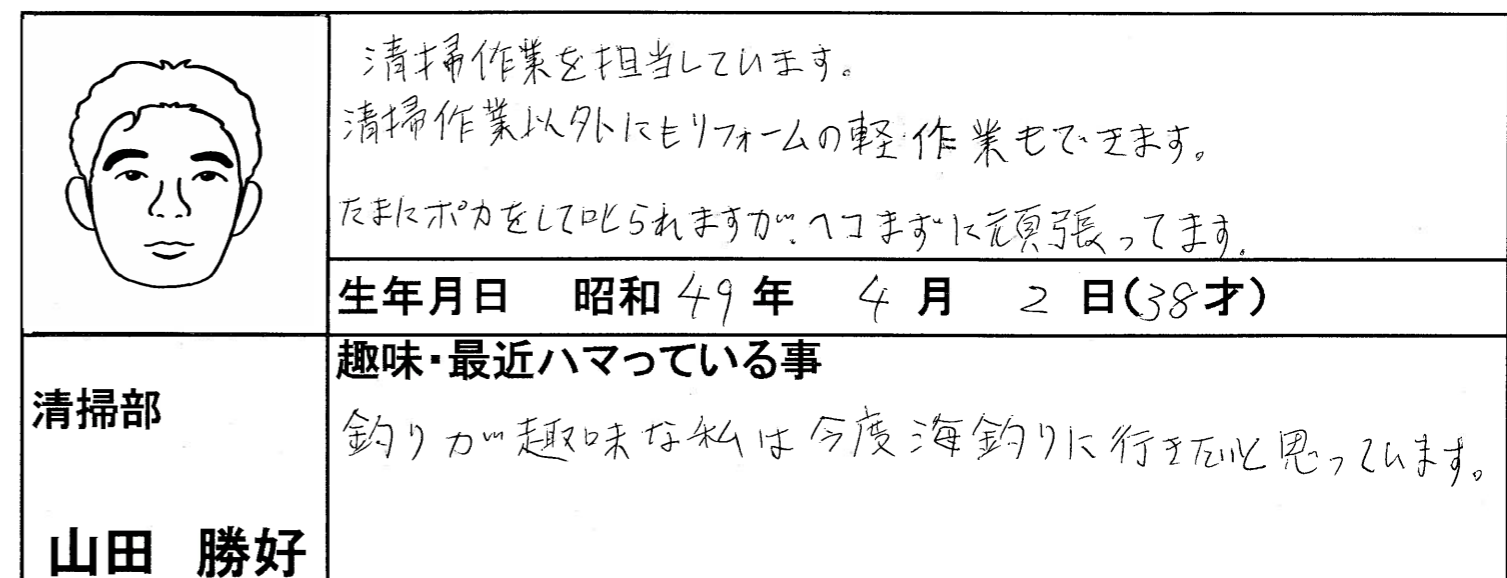 清掃作業を担当しています。
清掃作業以外にもリフォームの軽作業もできます。
たまにポカをして叱られますが、ヘコまずに頑張ってます。
生年月日 昭和49年 4月 2日(38才)
趣味・最近ハマっている事
清掃部
釣りが趣味な私は今度海釣りに行きたいと思っています。
山田 勝好